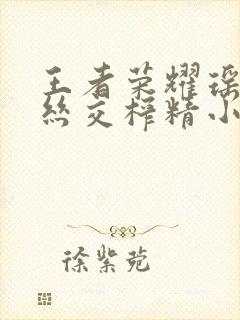 王者荣耀瑶
丝交榨精小
徐紫苑